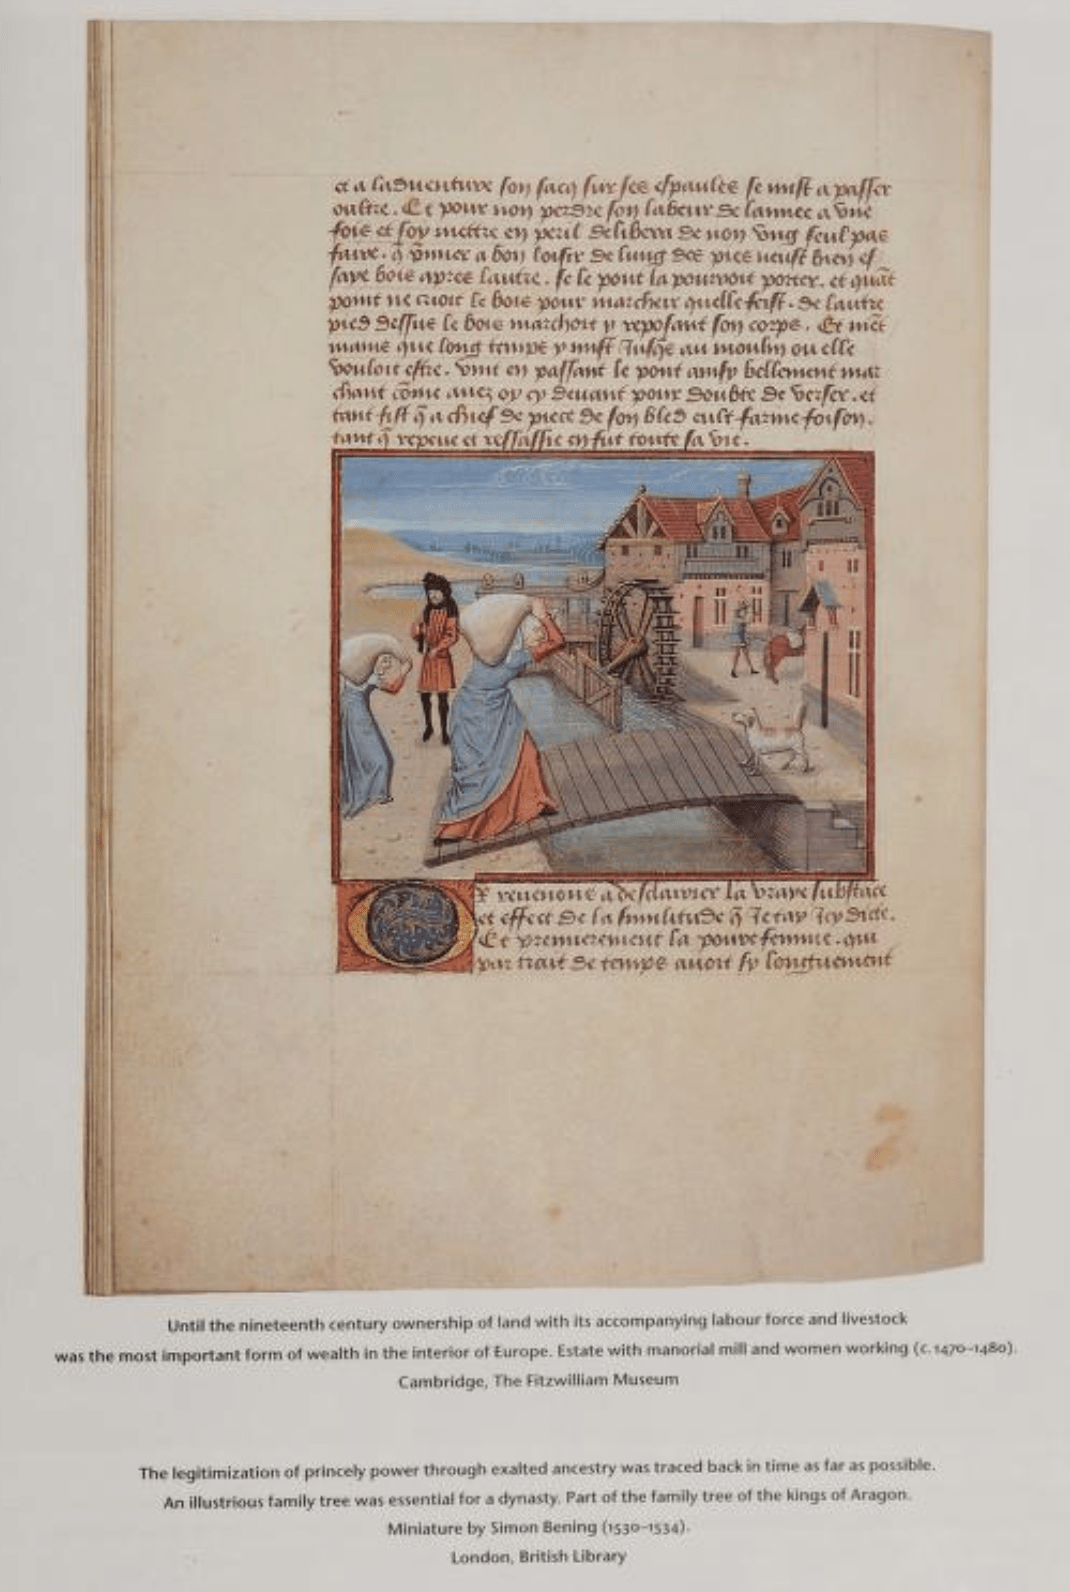 et a laduenture son sacq sur ses espaules se mist a passer
oultre. Et pour non perdre son labeur de lannee a vne
fois et soy mettre en peril delibera de non vng seul pas
faire. q̄ p̄mier a bon loisir de lung des pies neust bien es
saye bois apres lautre. se le pont la pouroit porter. et quāt
point ne crioit le bois pour marcheir quelle feist. de lautre
pied dessus le bois marchoit y reposant son corps. Et
que long temps y mist Jusq̄s au moulin ou elle
vouloit estre. vint en passant le pont ainsy bellement mar
chant cōme auez oy cy deuant pour doubte de verser. et
tant fist q̄ a chief de piece de son bled eult farine foison.
tant q̄ repeue et ressassie en fut toute sa vie.
reuenons a desclairier la vraye substāce
et effect de la similitude q̄ Jetay Jcy dicte.
Et premierement la poure femme. qui
par trait de temps auoit sy longuement
Until the nineteenth century ownership of land with its accompanying labour force and livestock
was the most important form of wealth in the interior of Europe. Estate with manorial mill and women working (c. 1470–1480).
Cambridge, The Fitzwilliam Museum
The legitimization of princely power through exalted ancestry was traced back in time as far as possible.
An illustrious family tree was essential for a dynasty. Part of the family tree of the kings of Aragon.
Miniature by Simon Bening (1530–1534).
London, British Library